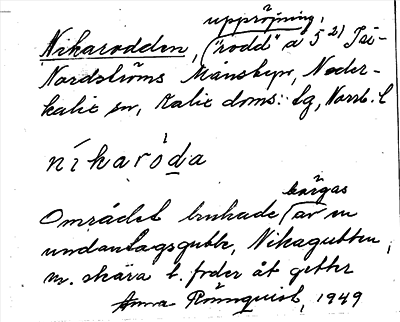 uppröjning,
Nikarodden, ("rodd" a 5 21) Isi-
Nordströms Månsbyn, Neder-
kalix sn, Kalix doms: lg, Norrb. l
níkaròda
bärgas
Området brukade (av en
undantagsgubbe, Nikagubben,
m. skära t. foder åt getter
Anna Rönnquist, 1949